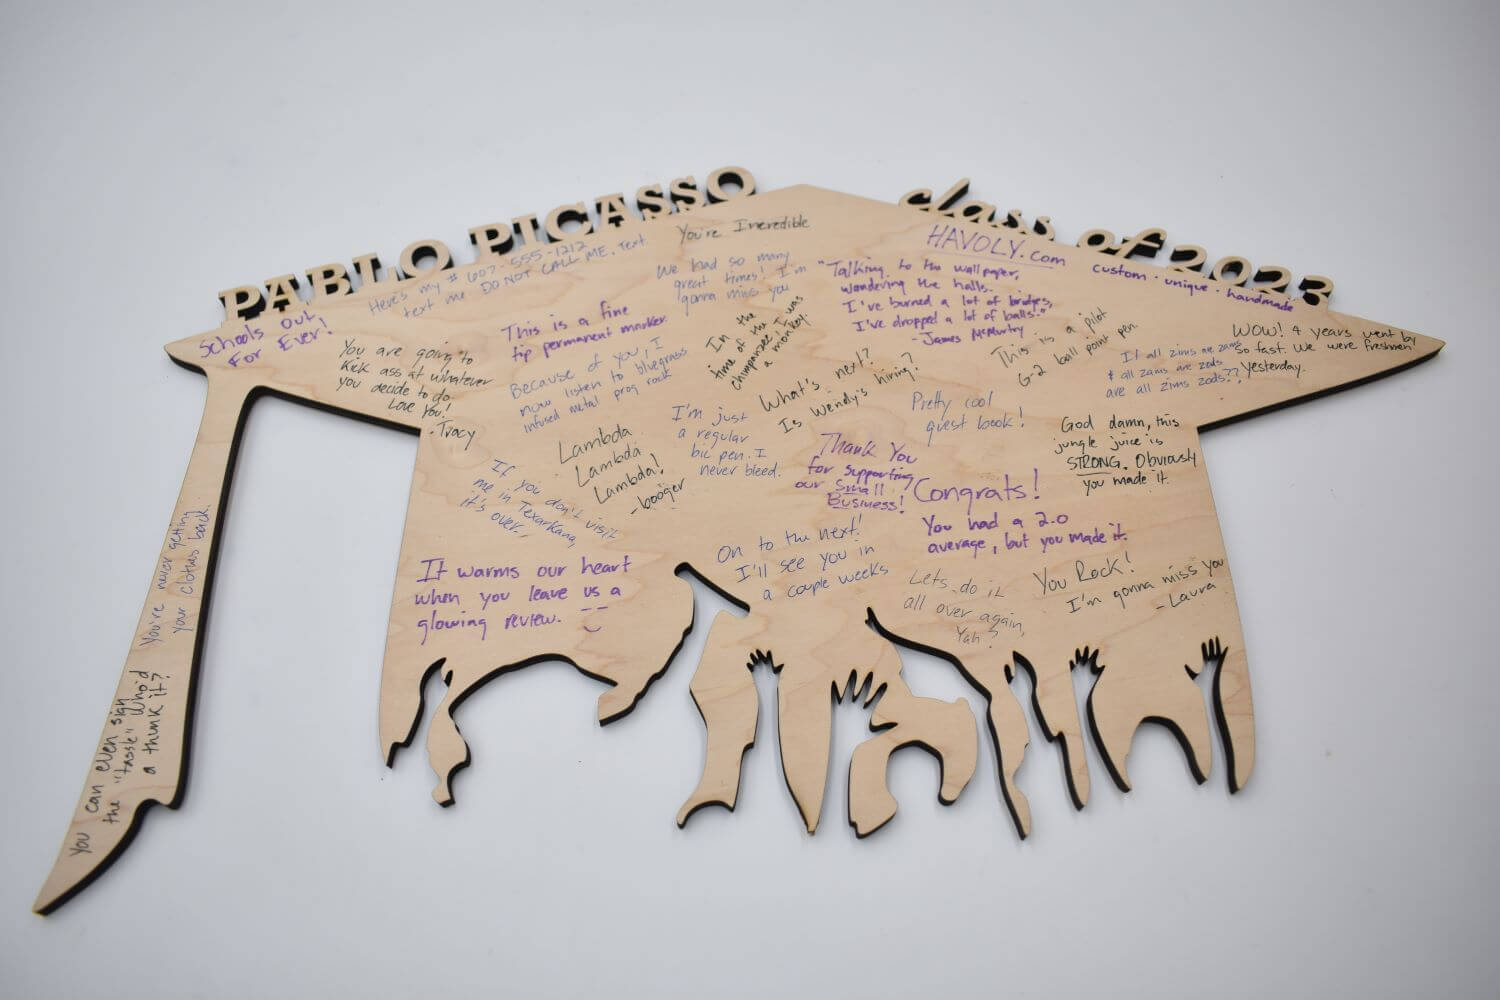 PABLO PICASSO
class of 2023
Schools Out
For Ever!
Here's my # 607-555-1212
text me DO NOT CALL ME. Text
You're Incredible
HAVOLY.com
custom · unique · handmade
You are going to
Kick ass at whatever
you decide to do.
Love You!
-Tracy
This is a fine
tip permanent marker.
We had so many
great times! I'm
gonna miss you
"Talking to the wallpaper,
wondering the halls.
I've burned a lot of bridges,
I've dropped a lot of balls!"
- James McMurtry
Because of you, I
now listen to bluegrass
infused metal prog rock
In the
time of the
chimpanzee, I was
a monkey.
This is a pilot
G-2 ball point pen.
If all zims are zams
& all zams are zods
are all zims zods??
WOW! 4 years went by
So fast. We were freshmen
yesterday.
What's next?
Is Wendy's hiring?
Pretty cool
guest book!
Lambda
Lambda
Lambda!
-booger
I'm just
a regular
bic pen. I
never bleed.
God damn, this
jungle juice is
STRONG. Obviously
you made it.
Thank You
for supporting
our Small
Business!
If you don't visit
me in Texarkana,
it's over..
Congrats!
You had a 2.0
average, but you made it.
It warms our heart
when you leave us a
glowing review.
On to the next!
I'll see you in
a couple weeks
Lets do it
all over again,
Yah?
You Rock!
I'm gonna miss you
- Laura
You're never getting
your clothes back.
You can even sign
the "tassle" Who'd
a thunk it?